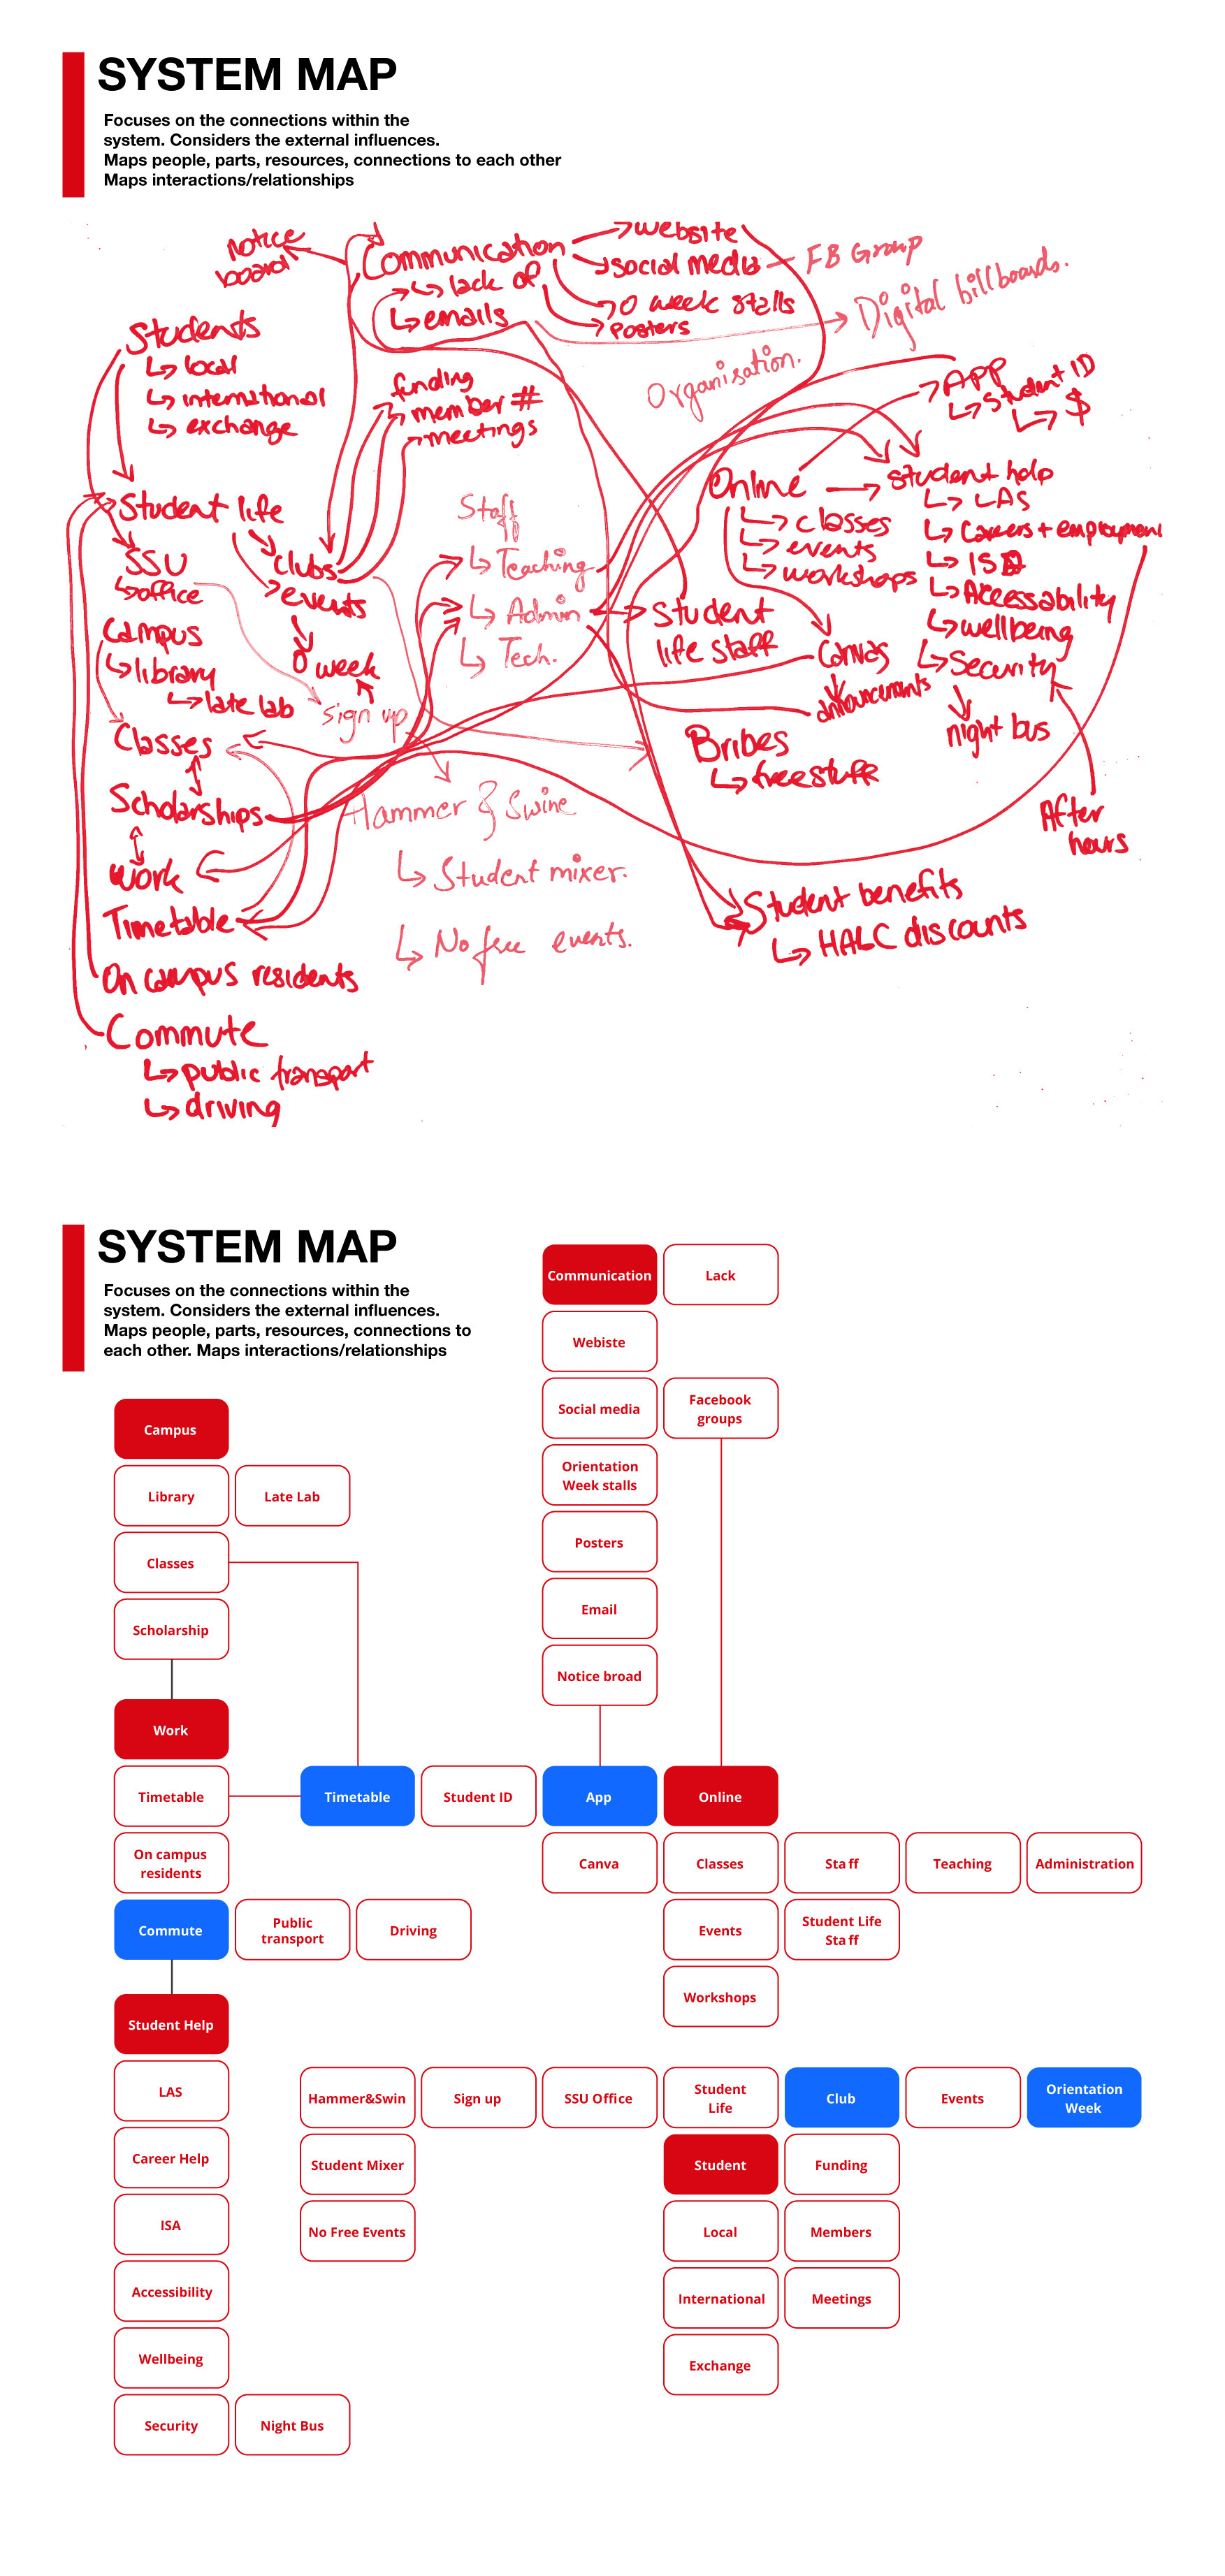 SYSTEM MAP
Focuses on the connections within the
system. Considers the external influences.
Maps people, parts, resources, connections to each other
Maps interactions/relationships
Notice
board
Communication
lack of
emails
website
social media
FB Group
O week stalls
posters
Digital billboards.
Organisation.
Students
local
international
exchange
funding
member #
meetings
APP
Student ID
$
Student life
SSU
office
clubs
events
O week
sign up
Staff
Teaching
Admin
Tech.
Student
life staff
Online
classes
events
workshops
Canvas
announcements
student help
LAS
Careers + employment
ISA
Accessability
wellbeing
Security
night bus
After
hours
Campus
library
late lab
Classes
Scholarships
work
Timetable
On campus residents
Commute
public transport
driving
Hammer & Swine
Student mixer.
No free events.
Bribes
free stuff
Student benefits
HALC discounts
SYSTEM MAP
Focuses on the connections within the
system. Considers the external influences.
Maps people, parts, resources, connections to
each other. Maps interactions/relationships
Communication
Lack
Webiste
Social media
Facebook
groups
Orientation
Week stalls
Posters
Email
Notice broad
Campus
Library
Late Lab
Classes
Scholarship
Work
Timetable
Timetable
Student ID
App
Online
On campus
residents
Canva
Classes
Staff
Teaching
Administration
Commute
Public
transport
Driving
Events
Student Life
Staff
Workshops
Student Help
LAS
Career Help
ISA
Accessibility
Wellbeing
Security
Night Bus
Hammer&Swin
Sign up
SSU Office
Student
Life
Club
Events
Orientation
Week
Student Mixer
Student
Funding
No Free Events
Local
Members
International
Meetings
Exchange